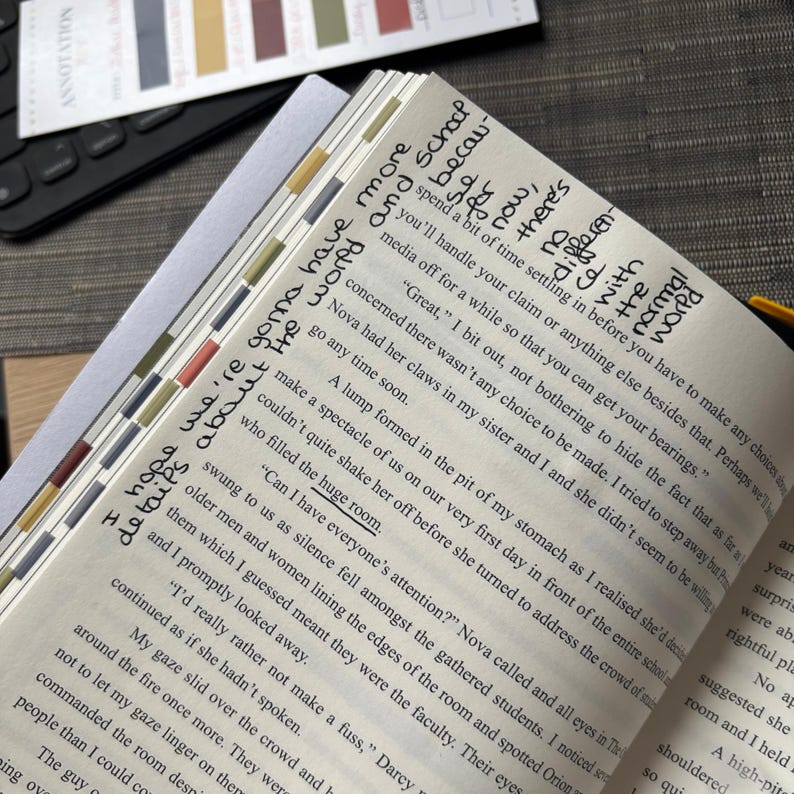 ANNOTATION
I hope we're gonna have more
details about the world and school
becau-
se for
now,
there's
no
differen-
ce
with
the
normal
world
spend a bit of time settling in before you have to make any choices about
you'll handle your claim or anything else besides that. Perhaps we'll
media off for a while so that you can get your bearings."
"Great," I bit out, not bothering to hide the fact that as far as I
concerned there wasn't any choice to be made. I tried to step away but
Nova had her claws in my sister and I and she didn't seem to be willing
go any time soon.
A lump formed in the pit of my stomach as I realised she'd
make a spectacle of us on our very first day in front of the entire school
couldn't quite shake her off before she turned to address the crowd of
who filled the huge room.
"Can I have everyone's attention?" Nova called and all eyes in The
swung to us as silence fell amongst the gathered students. I noticed
older men and women lining the edges of the room and spotted Orion
them which I guessed meant they were the faculty. Their eyes
and I promptly looked away.
"I'd really rather not make a fuss," Darcy
continued as if she hadn't spoken.
My gaze slid over the crowd and
around the fire once more. They were
not to let my gaze linger on them
commanded the room
people than I could
The guy
over
an
year
surpris
were ab
rightful pl
No ap
suggested she
room and I held
A high-pit
shouldered
so qui